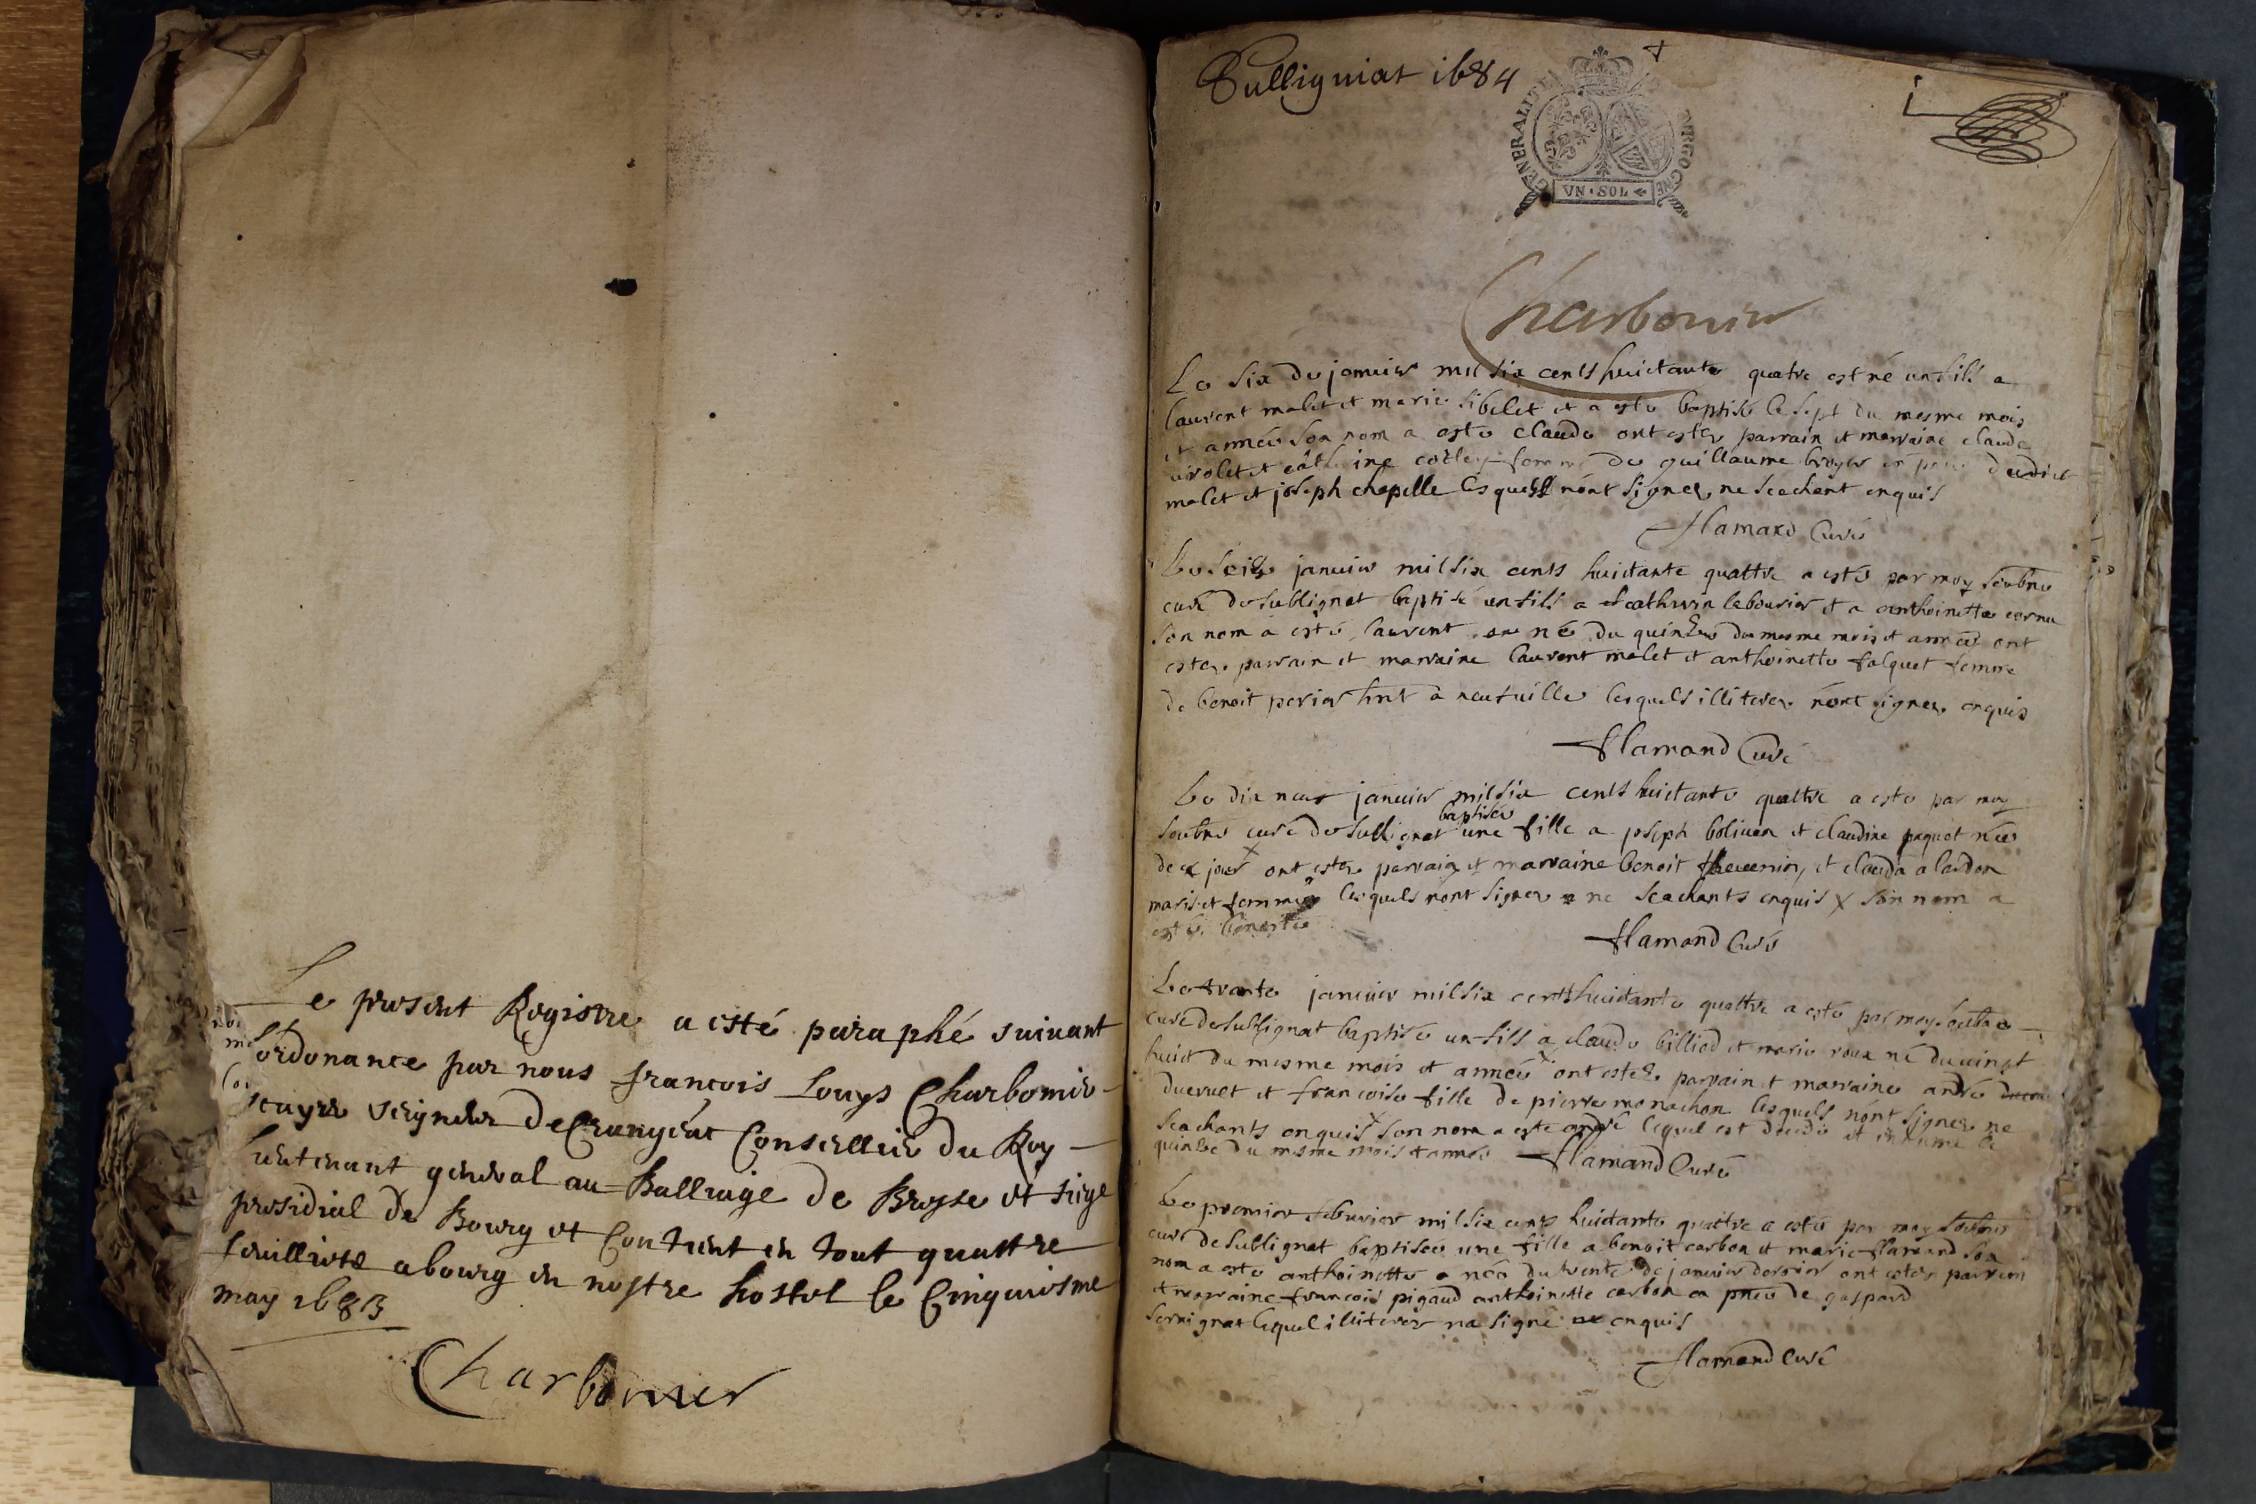 Le present Registre a esté paraphé suivant
l'ordonance par nous françois Louys Charbonnier
escuyer seigneur De Crangeac Conseillier du Roy
lieutenant general au Balliage de Bresse et siege
presidial de Bourg et Contient en tout quattre
feuilliets a bourg en nostre hostel le Cinquiesme
may 1683
Charbonier
Sulligniat 1684
1
GENERALITE BOURGOGNE
VN · SOL
Charbonier
Le six de janvier mil six cents huictante quatre est né un fils a
laurent malet et marie sibelet et a esté baptisé le sept du mesme mois
et année son nom a esté claude ont estez parrain et marraine claude
femme de guillaume broyer dudict
malet et joseph chapelle lesquels n'ont signez ne scachant enquis
flamand Curé
Le seize janvier mil six cents huictante quattre a esté par moy soubné
curé de sullignat baptisé un fils a lebourier et a anthoinette cornu
son nom a esté laurent né du quinze du mesme mois et année ont
estez parrain et marraine laurent malet et anthoinette falquet femme
de benoit perier a neufville lesquels illiterez n'ont signez enquis
flamand Curé
Le dix neuf janvier mil six cents huictante quattre a esté par moy
soubné curé de sullignat baptisée une fille a joseph boliven et claudine paquet née
de jour x ont estez parrain et marraine benoit thevenin et clauda alardon
maris et femme lesquels n'ont signez ne scachants enquis x son nom a
esté benoite
flamand Curé
Le trante janvier mil six cents huictante quattre a esté par moy soubné
curé de sullignat baptisé un fils a claude billiod et marie roux né du vingt
huict du mesme mois et année x ont estez parrain et marraine andré
ducruet et françoise fille de pierre monachon lesquels n'ont signez ne
scachants enquis x son nom a esté andré lequel est decedé et inhumé le
quinze du mesme mois et année flamand Curé
Le premier febvrier mil six cents huictante quattre a esté par moy soubné
curé de sullignat baptisée une fille a benoit carbon et marie flamand son
nom a esté anthoinette née du trente de janvier dernier ont estez parrain
et marraine françois pigaud anthoinette carbon en pnce de gaspard
sernignat lequel illiterez n'a signé enquis
flamand Curé